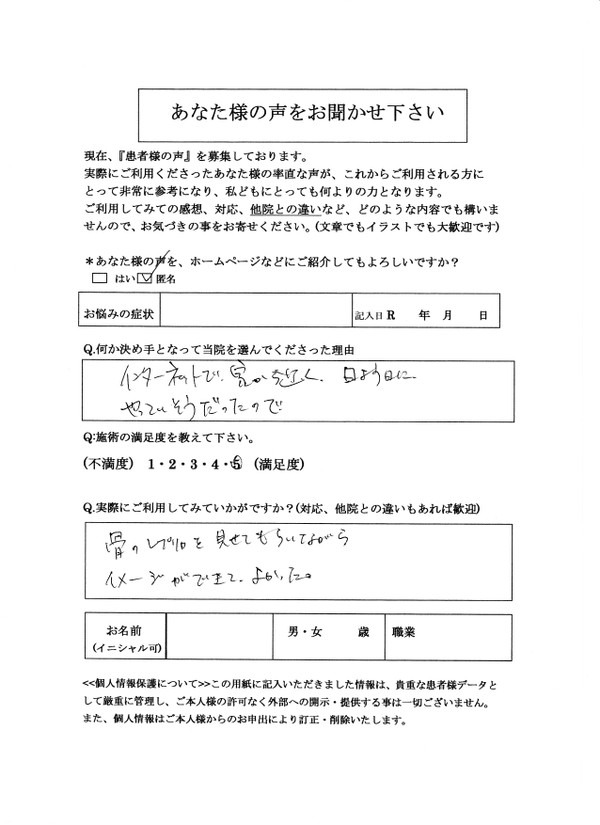 あなた様の声をお聞かせ下さい
現在、『患者様の声』を募集しております。
実際にご利用くださったあなた様の率直な声が、これからご利用される方に
とって非常に参考になり、私どもにとっても何よりの力となります。
ご利用してみての感想、対応、他院との違いなど、どのような内容でも構いま
せんので、お気づきの事をお寄せください。(文章でもイラストでも大歓迎です)
＊あなた様の声を、ホームページなどにご紹介してもよろしいですか？
□ はい ☑ 匿名
お悩みの症状 記入日 R 年 月 日
Q.何か決め手となって当院を選んでくださった理由
インターネットで、家から近く、日よう日に
やっていそうだったので
Q:施術の満足度を教えて下さい。
(不満度) 1・2・3・4・5 (満足度)
Q.実際にご利用してみていかがですか？(対応、他院との違いもあれば歓迎)
骨のレプリカを見せてもらいながら
イメージができて、よかった。
お名前 男・女 歳 職業
(イニシャル可)
<<個人情報保護について>>この用紙に記入いただきました情報は、貴重な患者様データと
して厳重に管理し、ご本人様の許可なく外部への開示・提供する事は一切ございません。
また、個人情報はご本人様からのお申出により訂正・削除いたします。